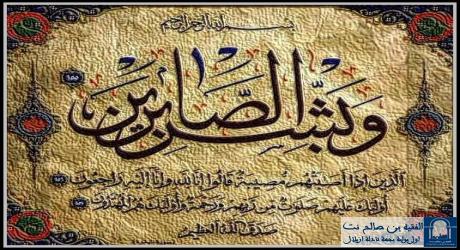 بسم الله الرحمن الرحيم
وَبَشِّرِ الصَّابِرِينَ ١٥٥
الَّذِينَ إِذَا أَصَابَتْهُم مُّصِيبَةٌ قَالُوا إِنَّا لِلَّهِ وَإِنَّا إِلَيْهِ رَاجِعُونَ
أُولَٰئِكَ عَلَيْهِمْ صَلَوَاتٌ مِّن رَّبِّهِمْ وَرَحْمَةٌ وَأُولَٰئِكَ هُمُ الْمُهْتَدُونَ
صدق الله العظيم
الفقيه بن صالح نت
اول بوابة بجهة تادلة ازيلال